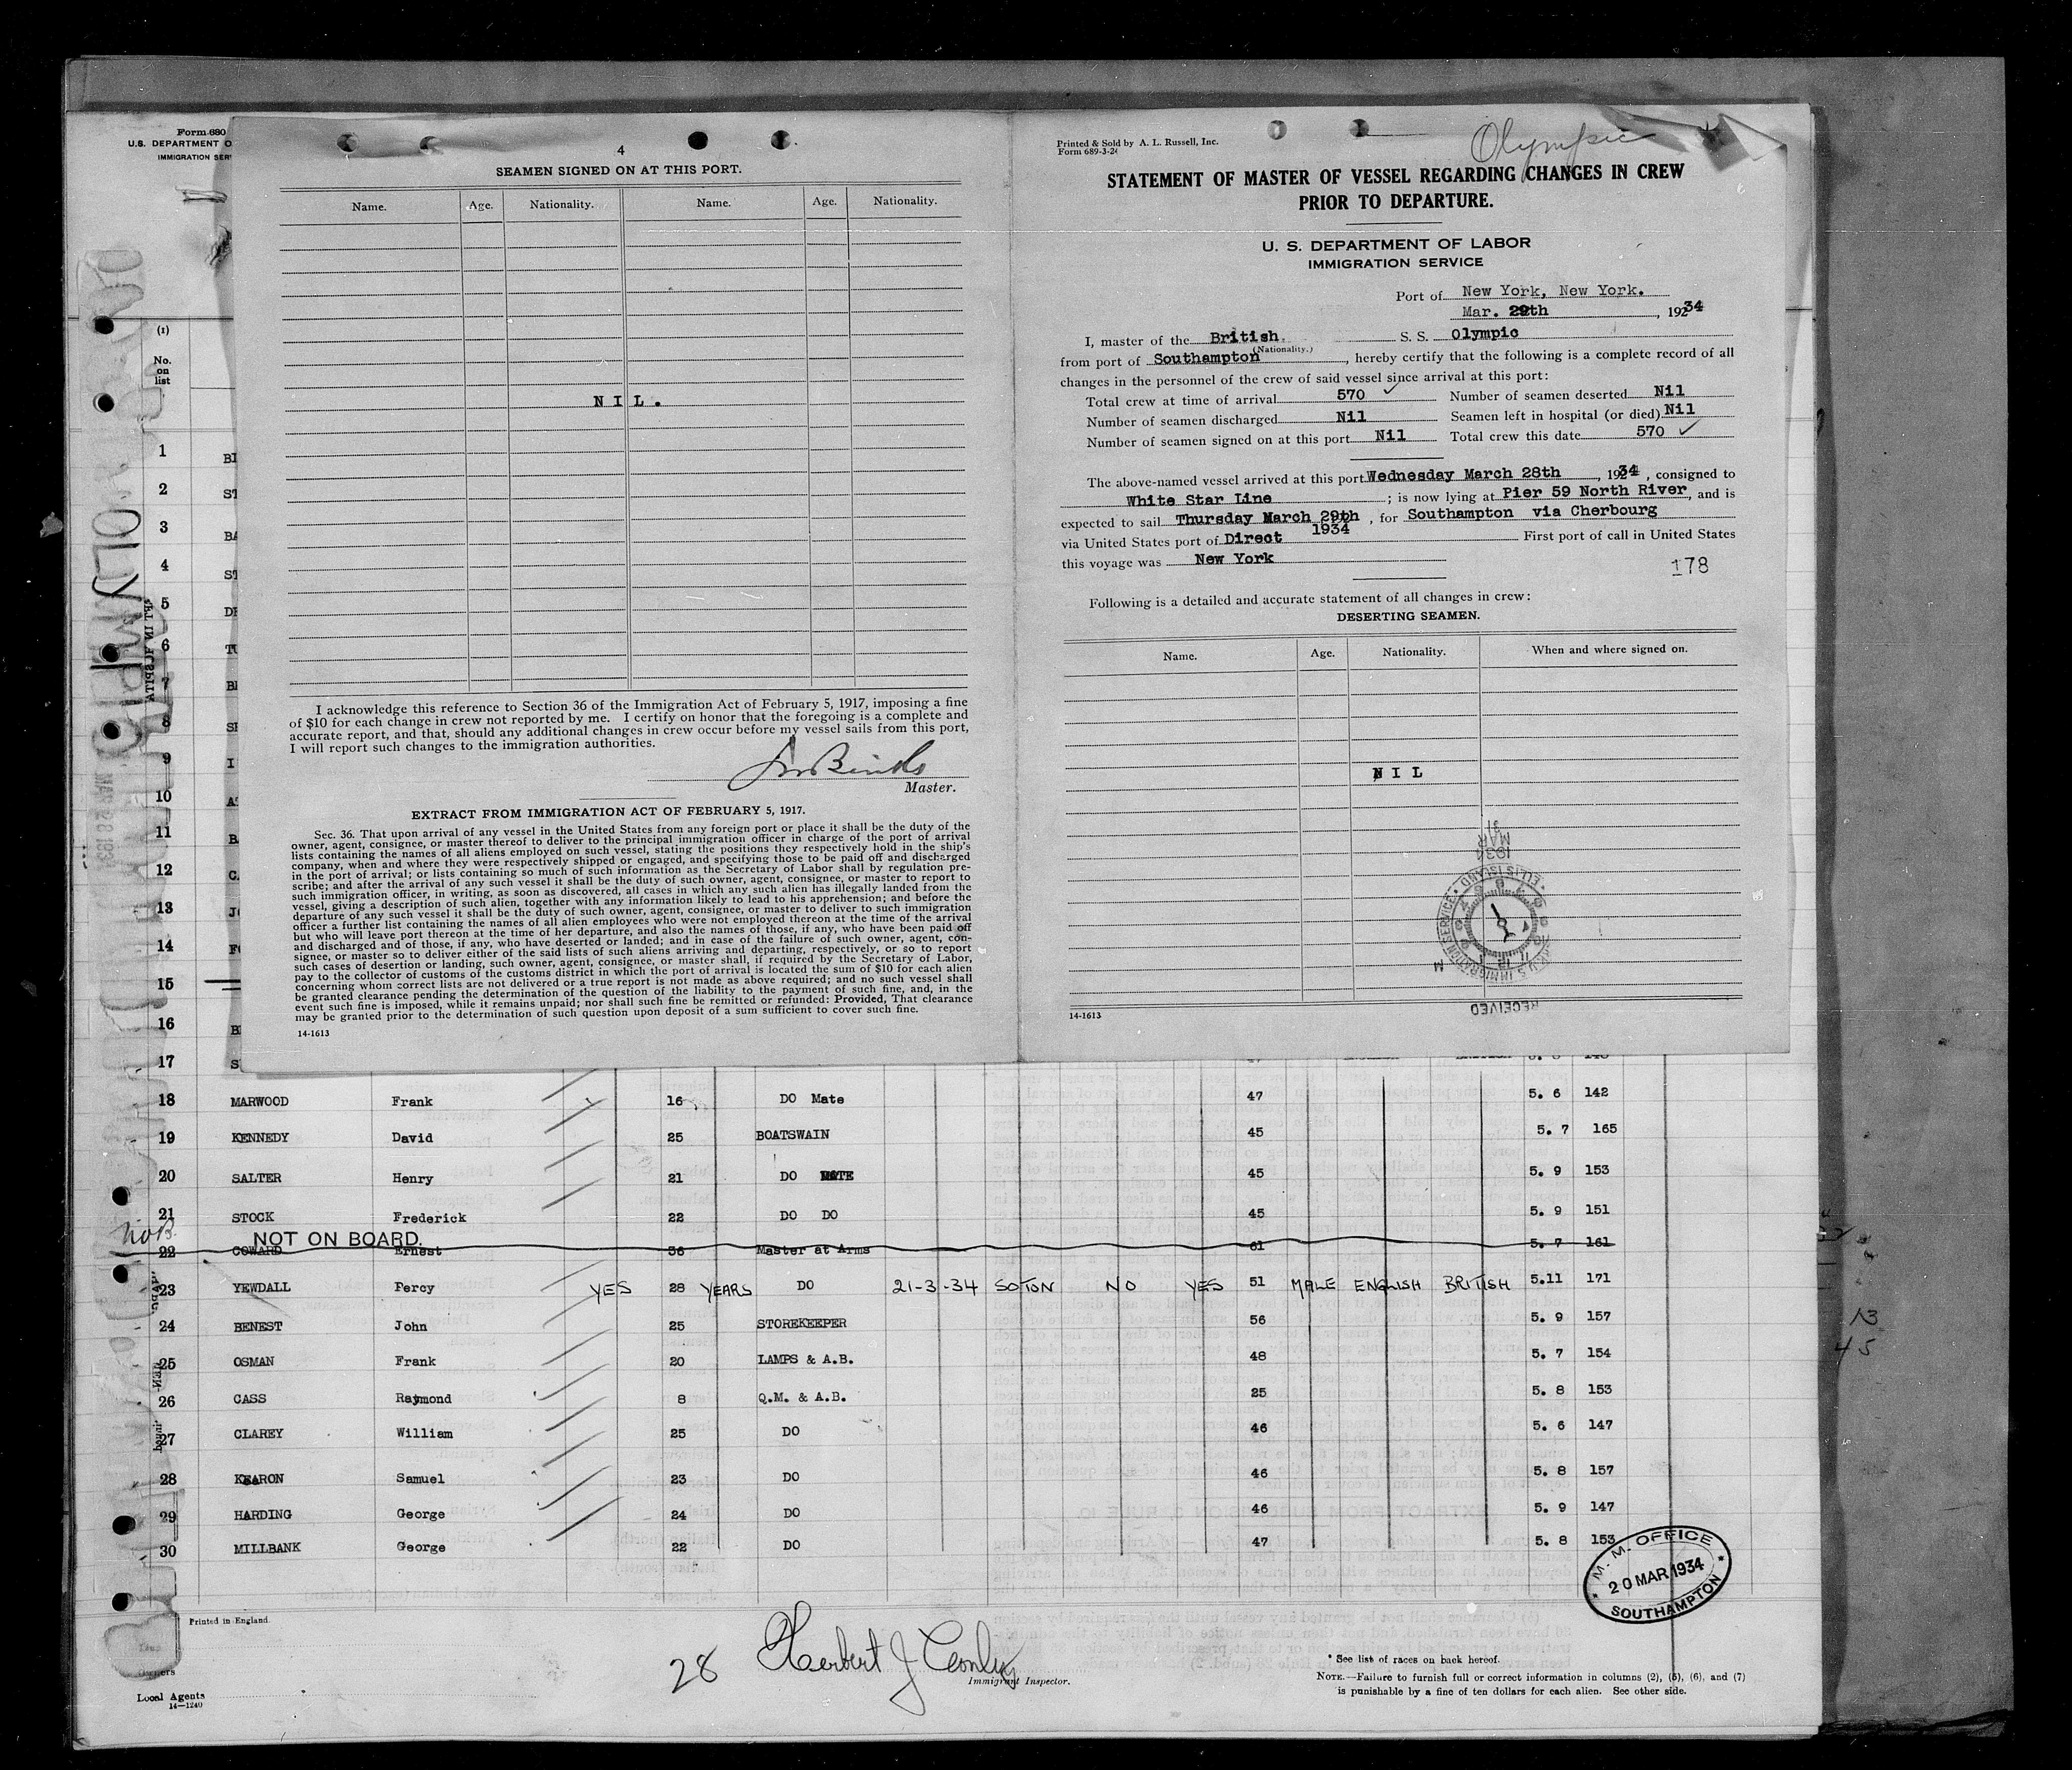 Form 680
U.S. DEPARTMENT O
IMMIGRATION SER
(1)
No.
on
list
1 BI
2 ST
3 BA
4 ST
5 DE
6 TU
7
8
9
10
11
12
13
14
15
16
17
4
SEAMEN SIGNED ON AT THIS PORT.
Name. Age. Nationality. Name. Age. Nationality.
N I L .
I acknowledge this reference to Section 36 of the Immigration Act of February 5, 1917, imposing a fine
of $10 for each change in crew not reported by me. I certify on honor that the foregoing is a complete and
accurate report, and that, should any additional changes in crew occur before my vessel sails from this port,
I will report such changes to the immigration authorities.
Master.
EXTRACT FROM IMMIGRATION ACT OF FEBRUARY 5, 1917.
Sec. 36. That upon arrival of any vessel in the United States from any foreign port or place it shall be the duty of the
owner, agent, consignee, or master thereof to deliver to the principal immigration officer in charge of the port of arrival
lists containing the names of all aliens employed on such vessel, stating the positions they respectively hold in the ship's
company, when and where they were respectively shipped or engaged, and specifying those to be paid off and discharged
in the port of arrival; or lists containing so much of such information as the Secretary of Labor shall by regulation pre-
scribe; and after the arrival of any such vessel it shall be the duty of such owner, agent, consignee, or master to report to
such immigration officer, in writing, as soon as discovered, all cases in which any such alien has illegally landed from the
vessel, giving a description of such alien, together with any information likely to lead to his apprehension; and before the
departure of any such vessel it shall be the duty of such owner, agent, consignee, or master to deliver to such immigration
officer a further list containing the names of all alien employees who were not employed thereon at the time of the arrival
but who will leave port thereon at the time of her departure, and also the names of those, if any, who have been paid off
and discharged and of those, if any, who have deserted or landed; and in case of the failure of such owner, agent, con-
signee, or master so to deliver either of the said lists of such aliens arriving and departing, respectively, or so to report
such cases of desertion or landing, such owner, agent, consignee, or master shall, if required by the Secretary of Labor,
pay to the collector of customs of the customs district in which the port of arrival is located the sum of $10 for each alien
concerning whom correct lists are not delivered or a true report is not made as above required; and no such vessel shall
be granted clearance pending the determination of the question of the liability to the payment of such fine, and, in the
event such fine is imposed, while it remains unpaid; nor shall such fine be remitted or refunded: Provided, That clearance
may be granted prior to the determination of such question upon deposit of a sum sufficient to cover such fine.
14-1613
Printed & Sold by A. L. Russell, Inc.
Form 689-3-24
Olympic
STATEMENT OF MASTER OF VESSEL REGARDING CHANGES IN CREW
PRIOR TO DEPARTURE.
U. S. DEPARTMENT OF LABOR
IMMIGRATION SERVICE
Port of New York, New York.
Mar. 29th, 1934
I, master of the British S. S. Olympic
(Nationality.)
from port of Southampton, hereby certify that the following is a complete record of all
changes in the personnel of the crew of said vessel since arrival at this port:
Total crew at time of arrival 570 ✓ Number of seamen deserted Nil
Number of seamen discharged Nil Seamen left in hospital (or died) Nil
Number of seamen signed on at this port Nil Total crew this date 570 ✓
The above-named vessel arrived at this port Wednesday March 28th, 1934, consigned to
White Star Line; is now lying at Pier 59 North River, and is
expected to sail Thursday March 29th 1934, for Southampton via Cherbourg
via United States port of Direct First port of call in United States
this voyage was New York
178
Following is a detailed and accurate statement of all changes in crew:
DESERTING SEAMEN.
Name. Age. Nationality. When and where signed on.
N I L
RECEIVED
U.S. IMMIGRATION SERVICE
ELLIS ISLAND
MAR
1934
14-1613
18 MARWOOD Frank 16 DO Mate 47 5. 6 142
19 KENNEDY David 25 BOATSWAIN 45 5. 7 165
20 SALTER Henry 21 DO MATE 45 5. 9 153
21 STOCK Frederick 22 DO DO 45 5. 9 151
NOT ON BOARD.
22 COWARD Ernest 36 Master at Arms 61 5. 7 161
23 YEWDALL Percy YES 28 YEARS DO 21-3-34 SOTON NO YES 51 MALE ENGLISH BRITISH 5.11 171
24 BENEST John 25 STOREKEEPER 56 5. 9 157
25 OSMAN Frank 20 LAMPS & A.B. 48 5. 7 154
26 CASS Raymond 8 Q.M. & A.B. 25 5. 8 153
27 CLAREY William 25 DO 46 5. 6 147
28 KEARON Samuel 23 DO 46 5. 8 157
29 HARDING George 24 DO 46 5. 9 147
30 MILLBANK George 22 DO 47 5. 8 153
M. M. OFFICE
20 MAR 1934
SOUTHAMPTON
13
45
Printed in England
Owners
Local Agents
14-1240
28 Herbert J Conley
Immigrant Inspector.
* See list of races on back hereof.
NOTE.—Failure to furnish full or correct information in columns (2), (5), (6), and (7)
is punishable by a fine of ten dollars for each alien. See other side.